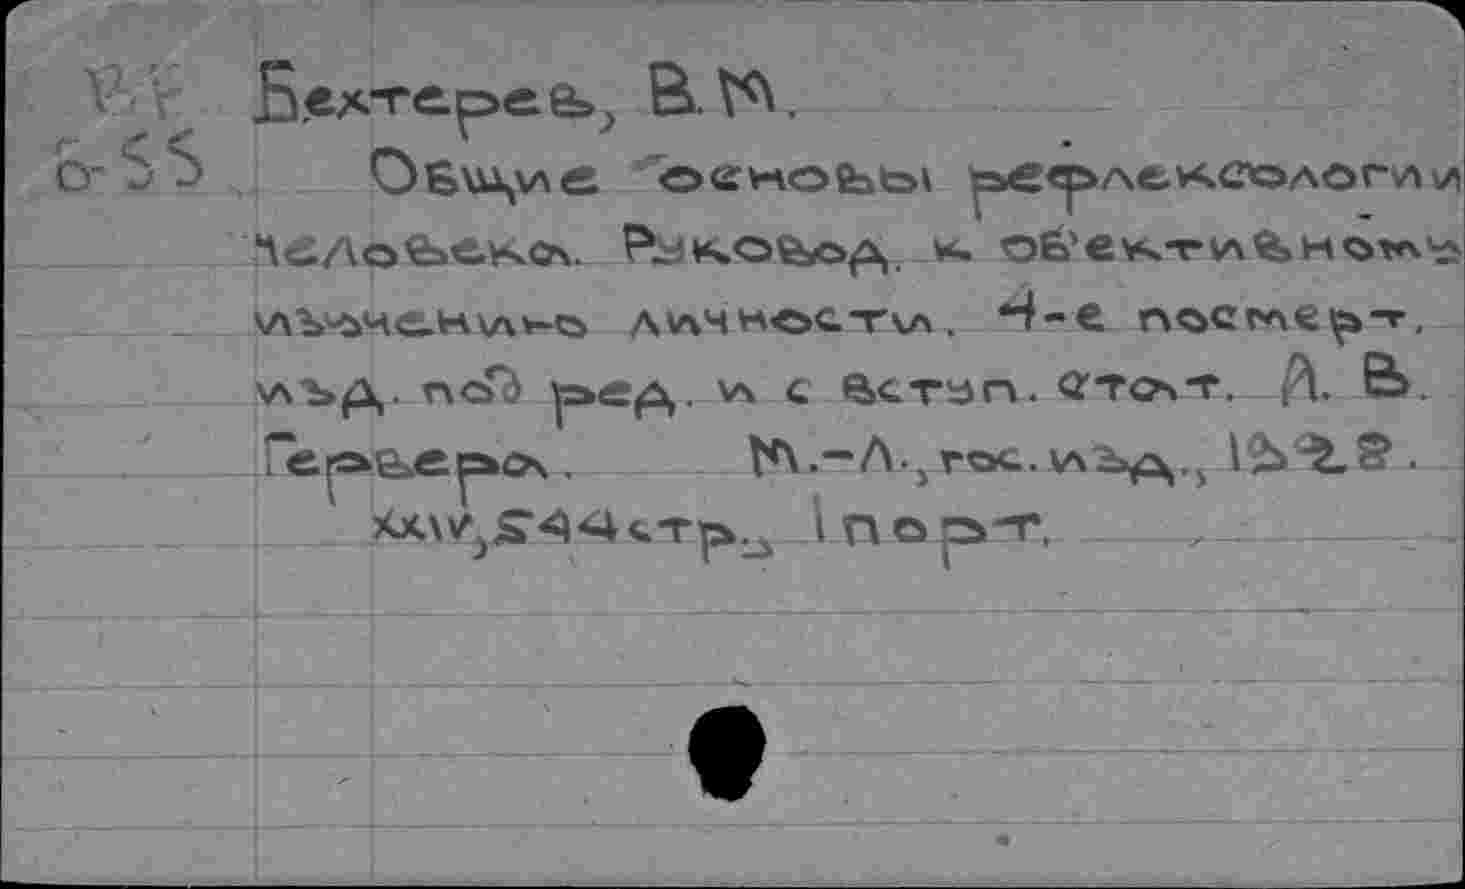 Бехтерев, В.М.
Б-55
Общие основы рефлексологии
человека. Руковод. к об'ективному
изучению личности. 4-е посмерт.
изд. под ред. и с вступ. стат. А. В.
Гервера. М.-Л., гос. изд., 1928.
544 стр., 1 порт.